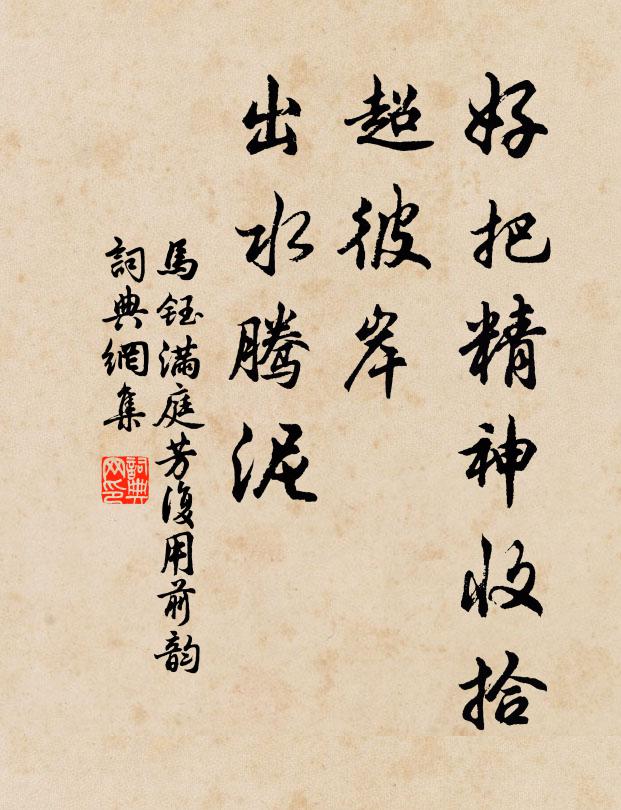 好把精神收拾
超彼岸
出水腾泥
馬鈺滿庭芳復用前韵
詞典網集
詞典
网印